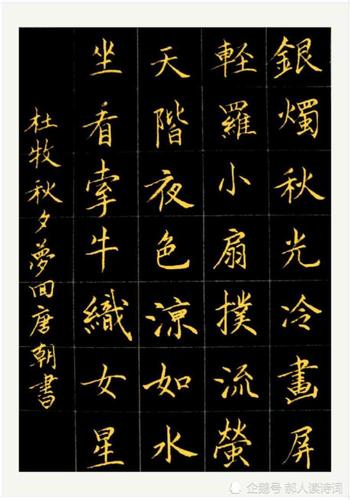 銀燭秋光冷畫屏
輕羅小扇撲流螢
天階夜色涼如水
坐看牽牛織女星
杜牧秋夕夢回唐朝書
企鹅号 郝人读诗词